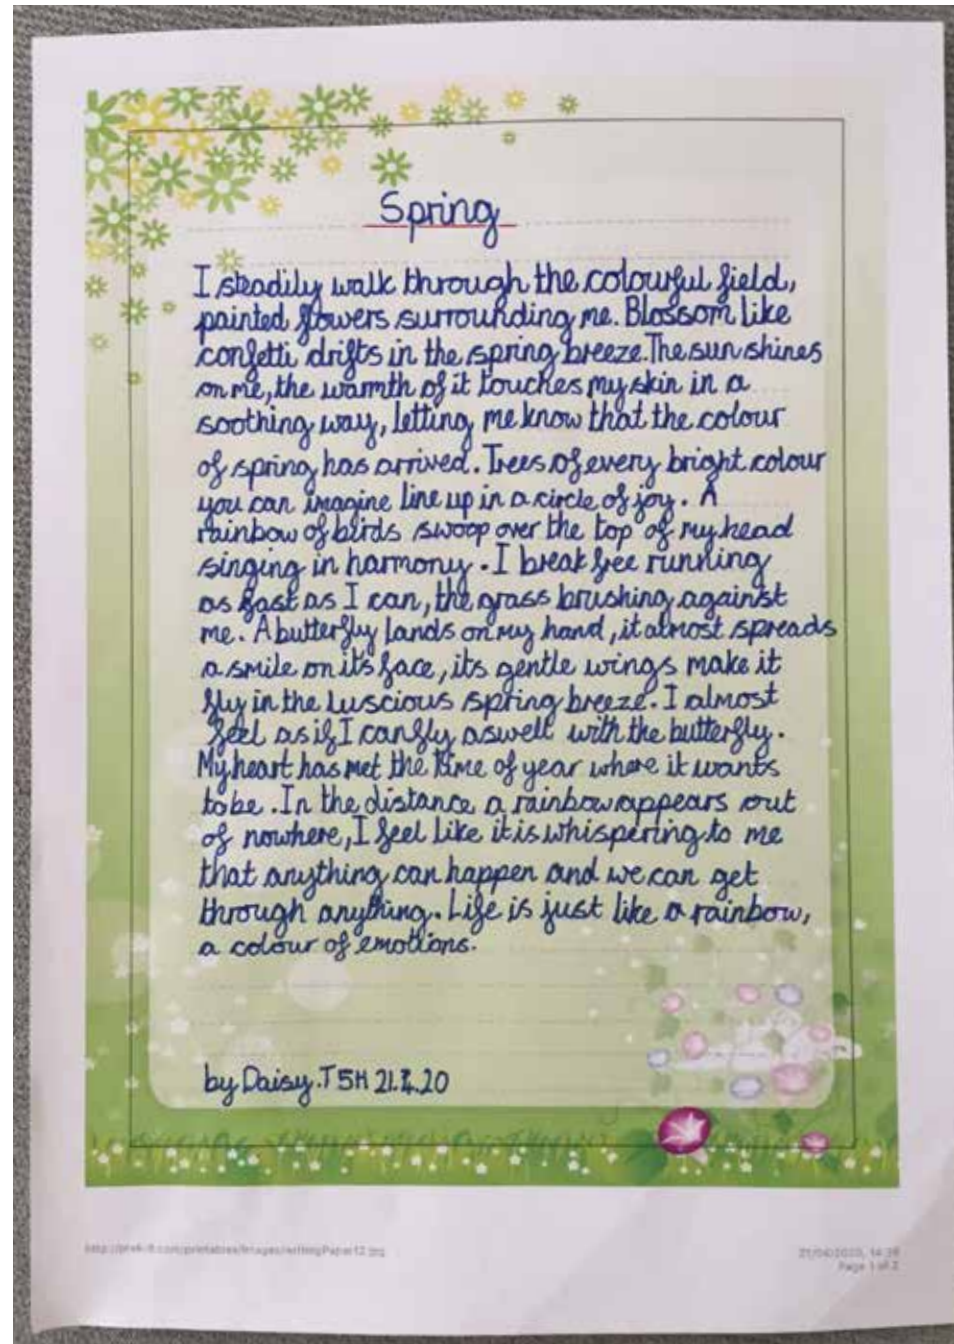 Spring
I steadily walk through the colourful field,
painted flowers surrounding me. Blossom like
confetti drifts in the spring breeze. The sun shines
on me, the warmth of it touches my skin in a
soothing way, letting me know that the colour
of spring has arrived. Trees of every bright colour
you can imagine line up in a circle of joy. A
rainbow of birds swoop over the top of my head
singing in harmony. I break free running
as fast as I can, the grass brushing against
me. A butterfly lands on my hand, it almost spreads
a smile on its face, its gentle wings make it
fly in the luscious spring breeze. I almost
feel as if I can fly aswell with the butterfly.
My heart has met the time of year where it wants
to be. In the distance a rainbow appears out
of nowhere, I feel like it is whispering to me
that anything can happen and we can get
through anything. Life is just like a rainbow,
a colour of emotions.
by Daisy.T 5H 21.4.20
21/04/2020, 14:38
Page 1 of 2